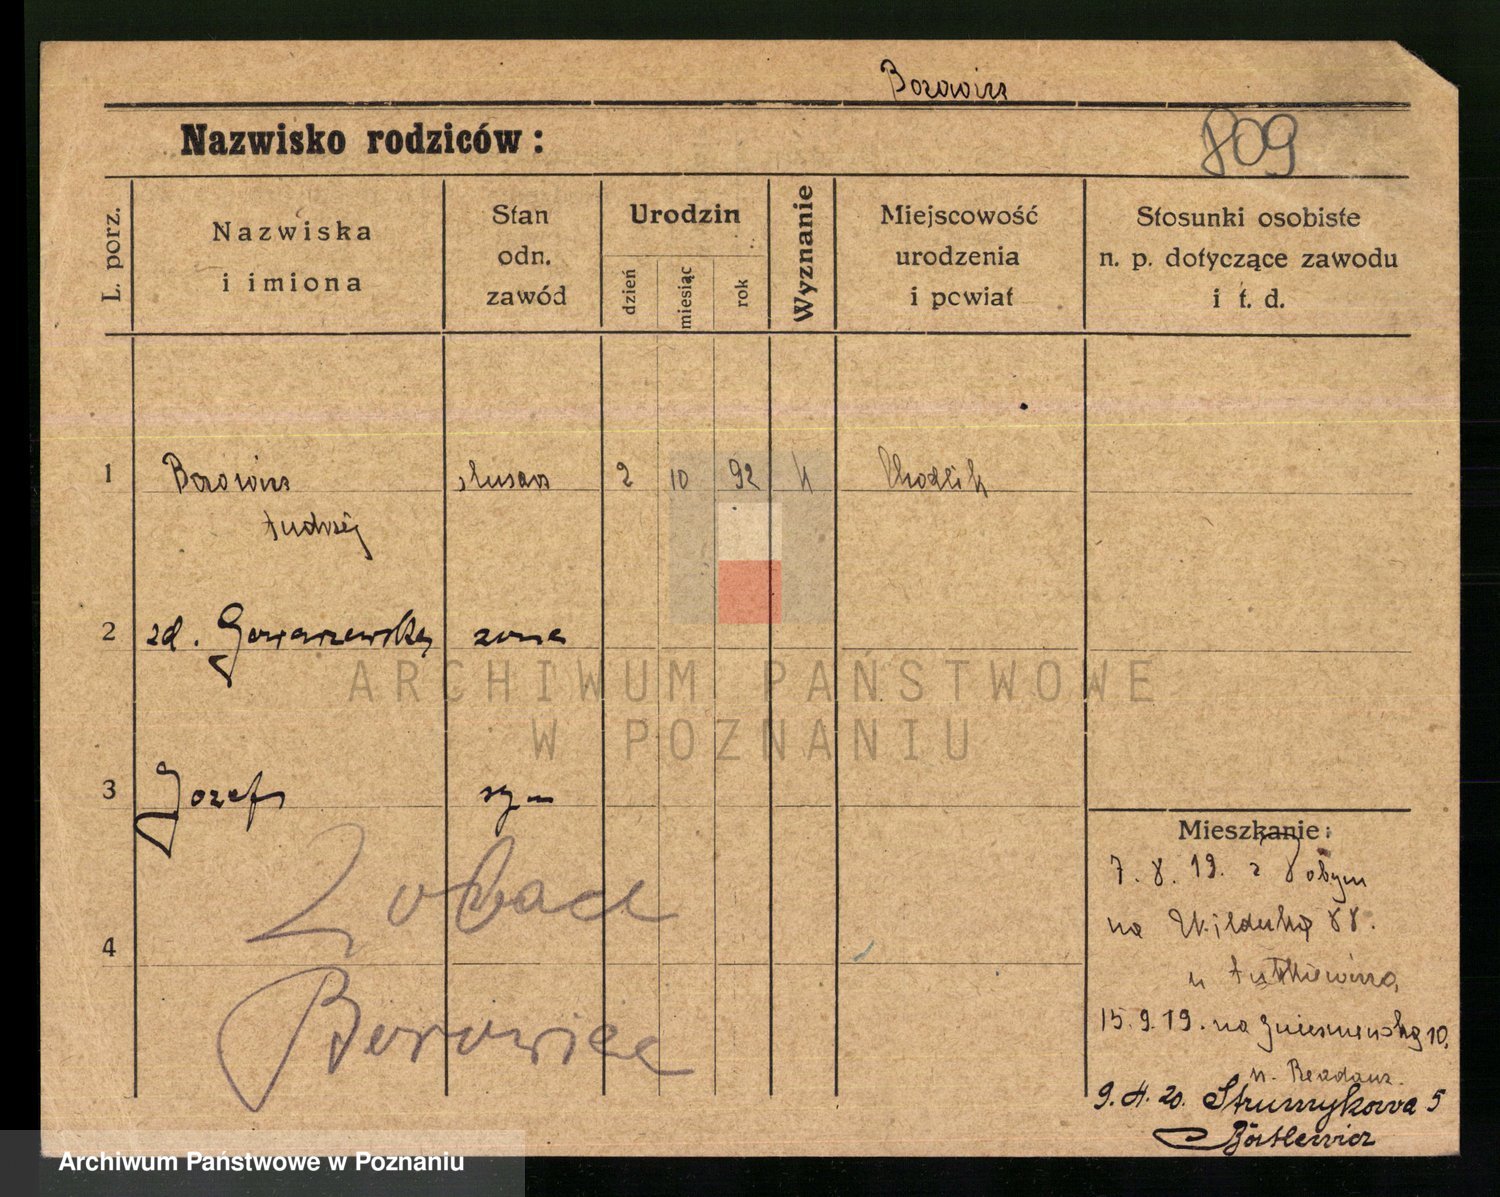 Borowicz
Nazwisko rodziców:
809
L. porz.
Nazwiska
i imiona
Stan
odn.
zawód
Urodzin
dzień
miesiąc
rok
Wyznanie
Miejscowość
urodzenia
i powiat
Stosunki osobiste
n. p. dotyczące zawodu
i t. d.
1 Borowicz ślusarz 2 10 92 k Chodlik
Andrzej
2 zd. żona
3 Józef syn
4
Zobacz
Borowicz
Mieszkanie:
7. 8. 19. z
na 88.
u
15.9.19. na 10.
u.
9. 4. 20. Strumykowa 5
ARCHIWUM PAŃSTWOWE
W POZNANIU
Archiwum Państwowe w Poznaniu